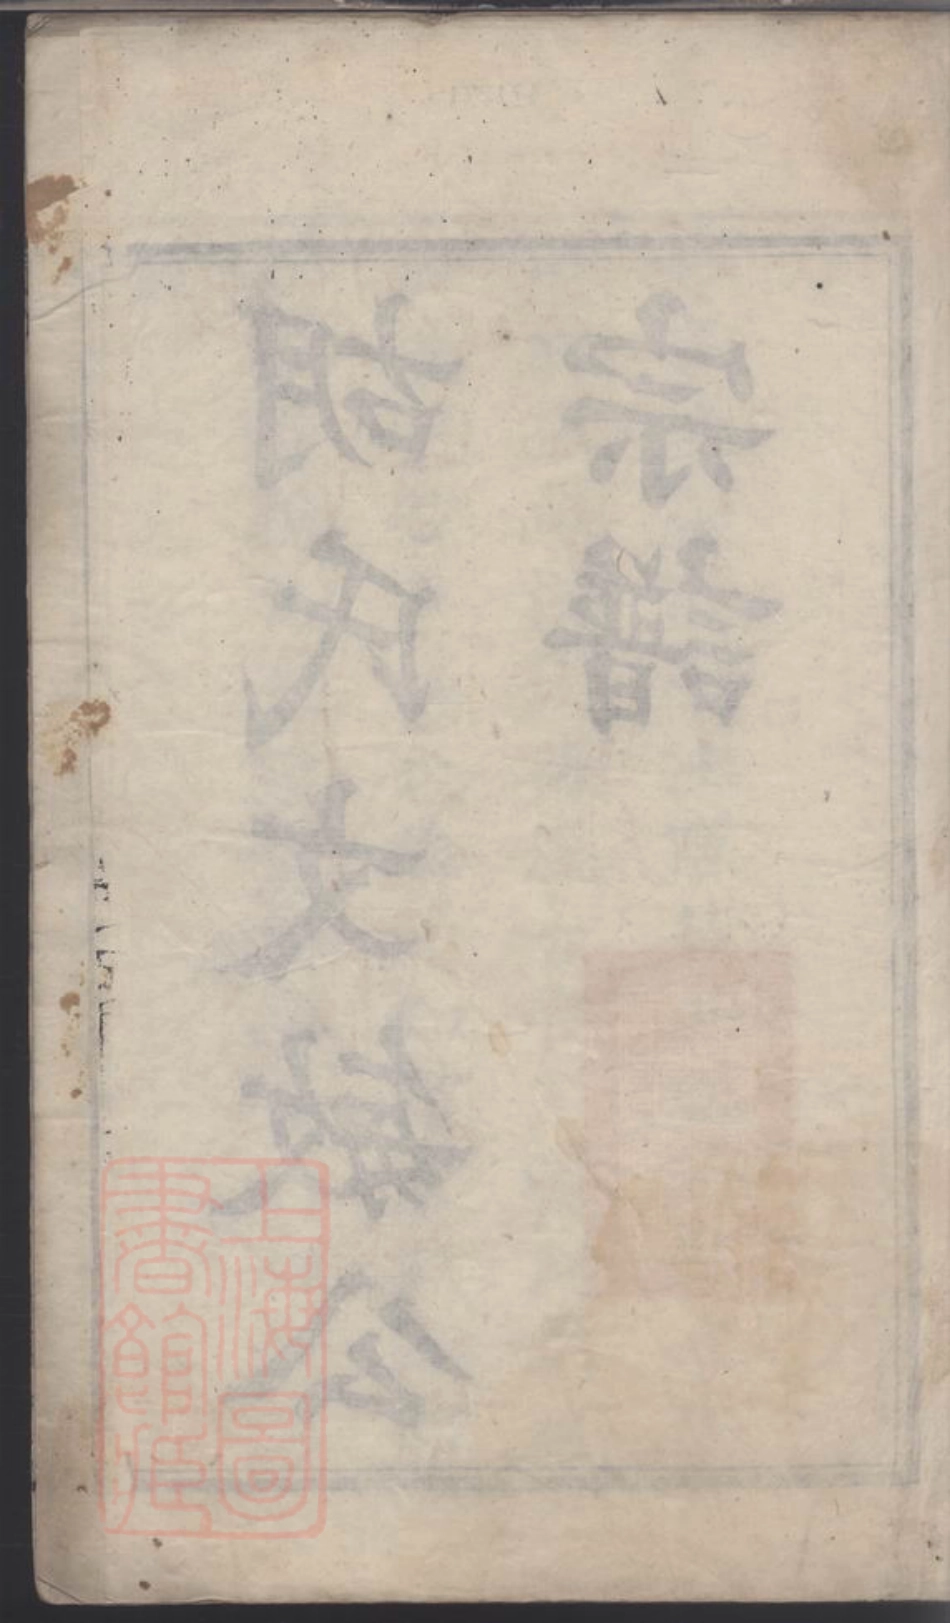 胡氏文敏公
宗譜
上海圖
書館藏